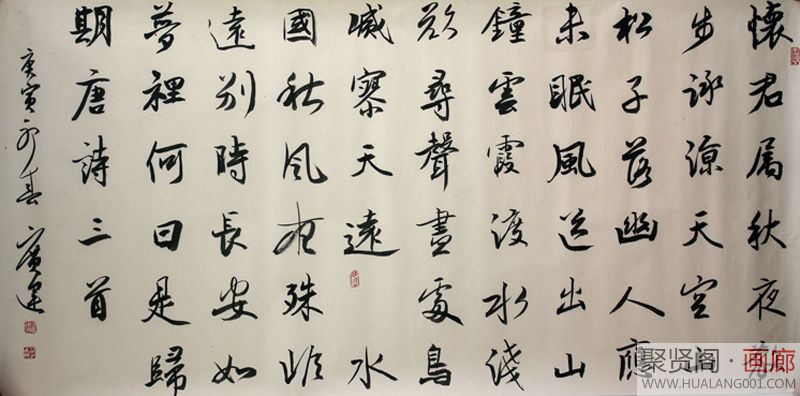 懷君属秋夜散
步詠涼天空山
松子落幽人應
未眠風送出山
鐘雲霞渡水淺
欲尋聲盡處鳥
滅寥天遠 水
國秋風夜殊非
遠別時長安如
夢裡何日是歸
期唐詩三首
庚寅初春
聚贤阁·画廊
WWW.HUALANG001.COM